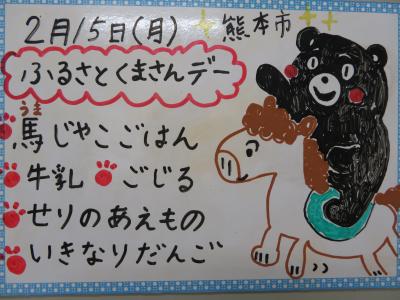 2月15日(月) 熊本市
ふるさとくまさんデー
うま
馬じゃこごはん
牛乳 ごじる
せりのあえもの
いきなりだんご